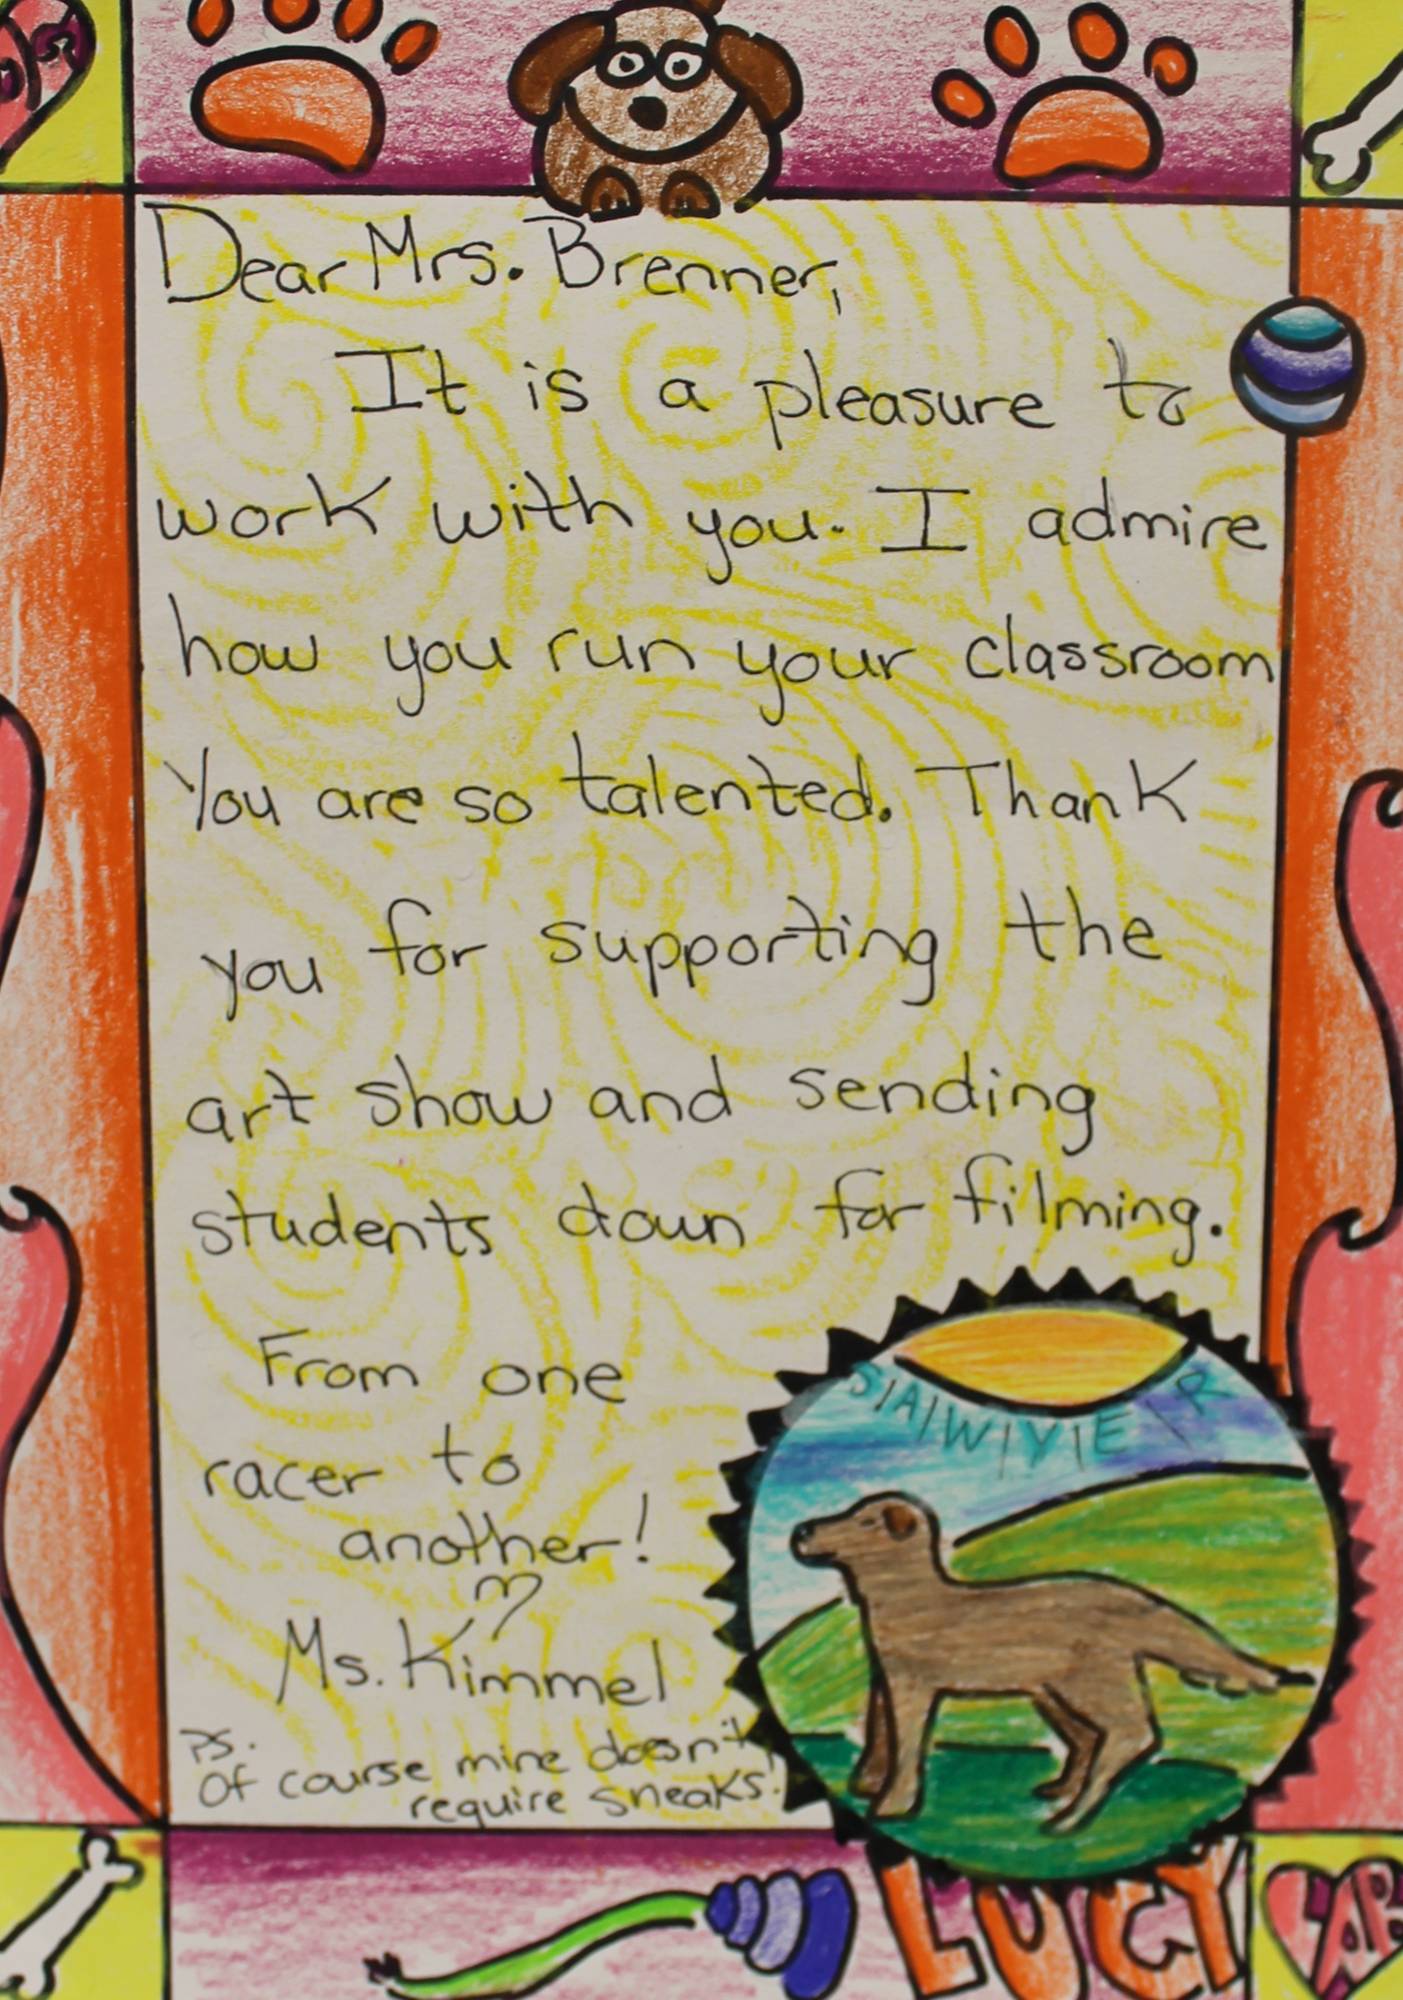 Dear Mrs. Brenner,
It is a pleasure to
work with you. I admire
how you run your classroom
You are so talented. Thank
you for supporting the
art show and sending
students down for filming.
From one
racer to
another!
Ms. Kimmel
PS.
Of course mine doesn't
require sneaks!
SAWYER
LUCY
LAB